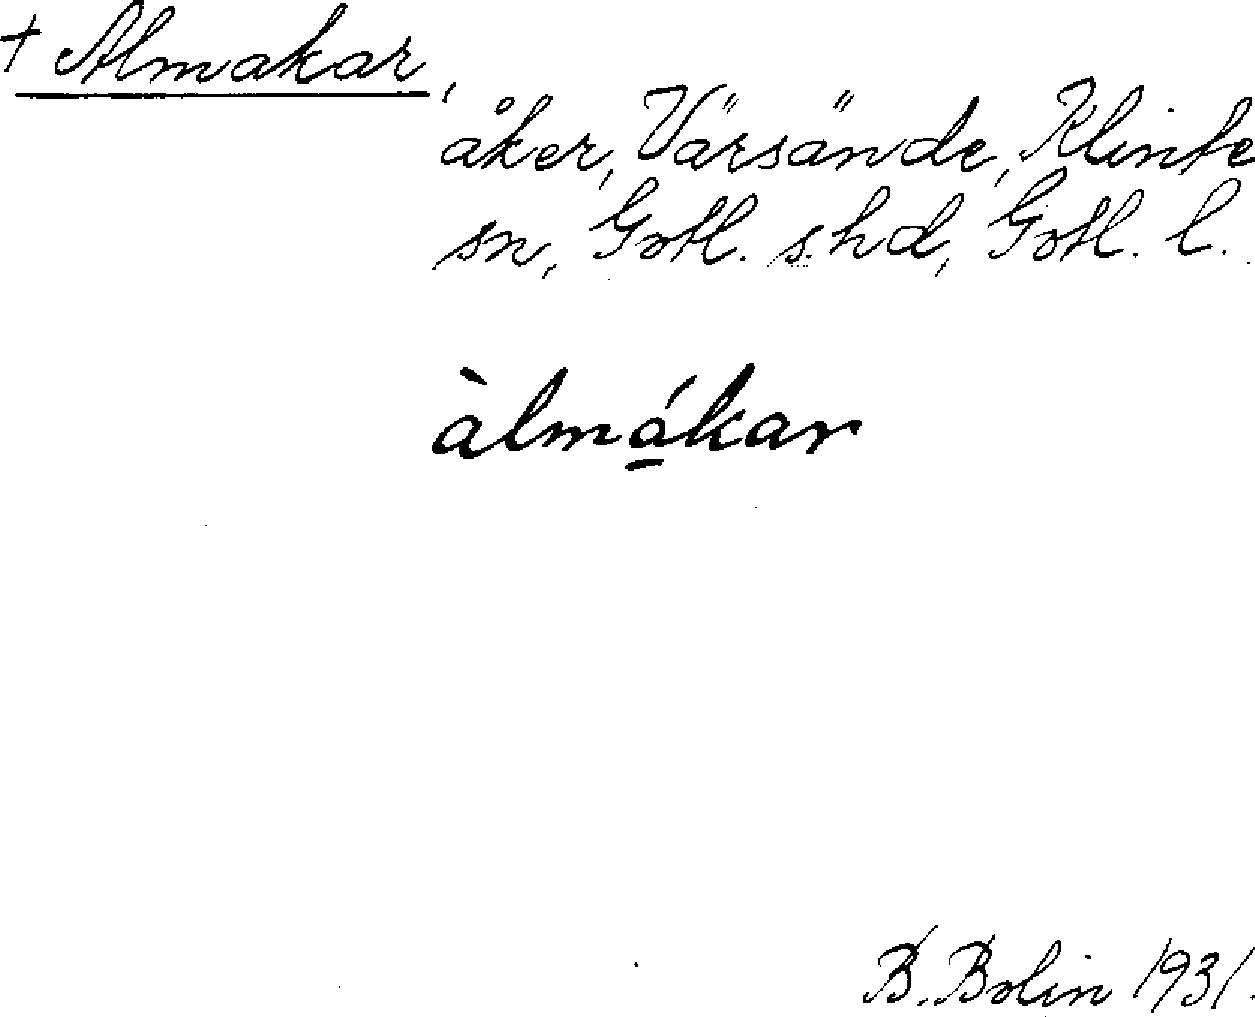 + Almakar,
åker, Värsände, Klinte
sn, Gotl. s. hd, Gotl. l.
àlmá̱kar
B. Bolin 1931.